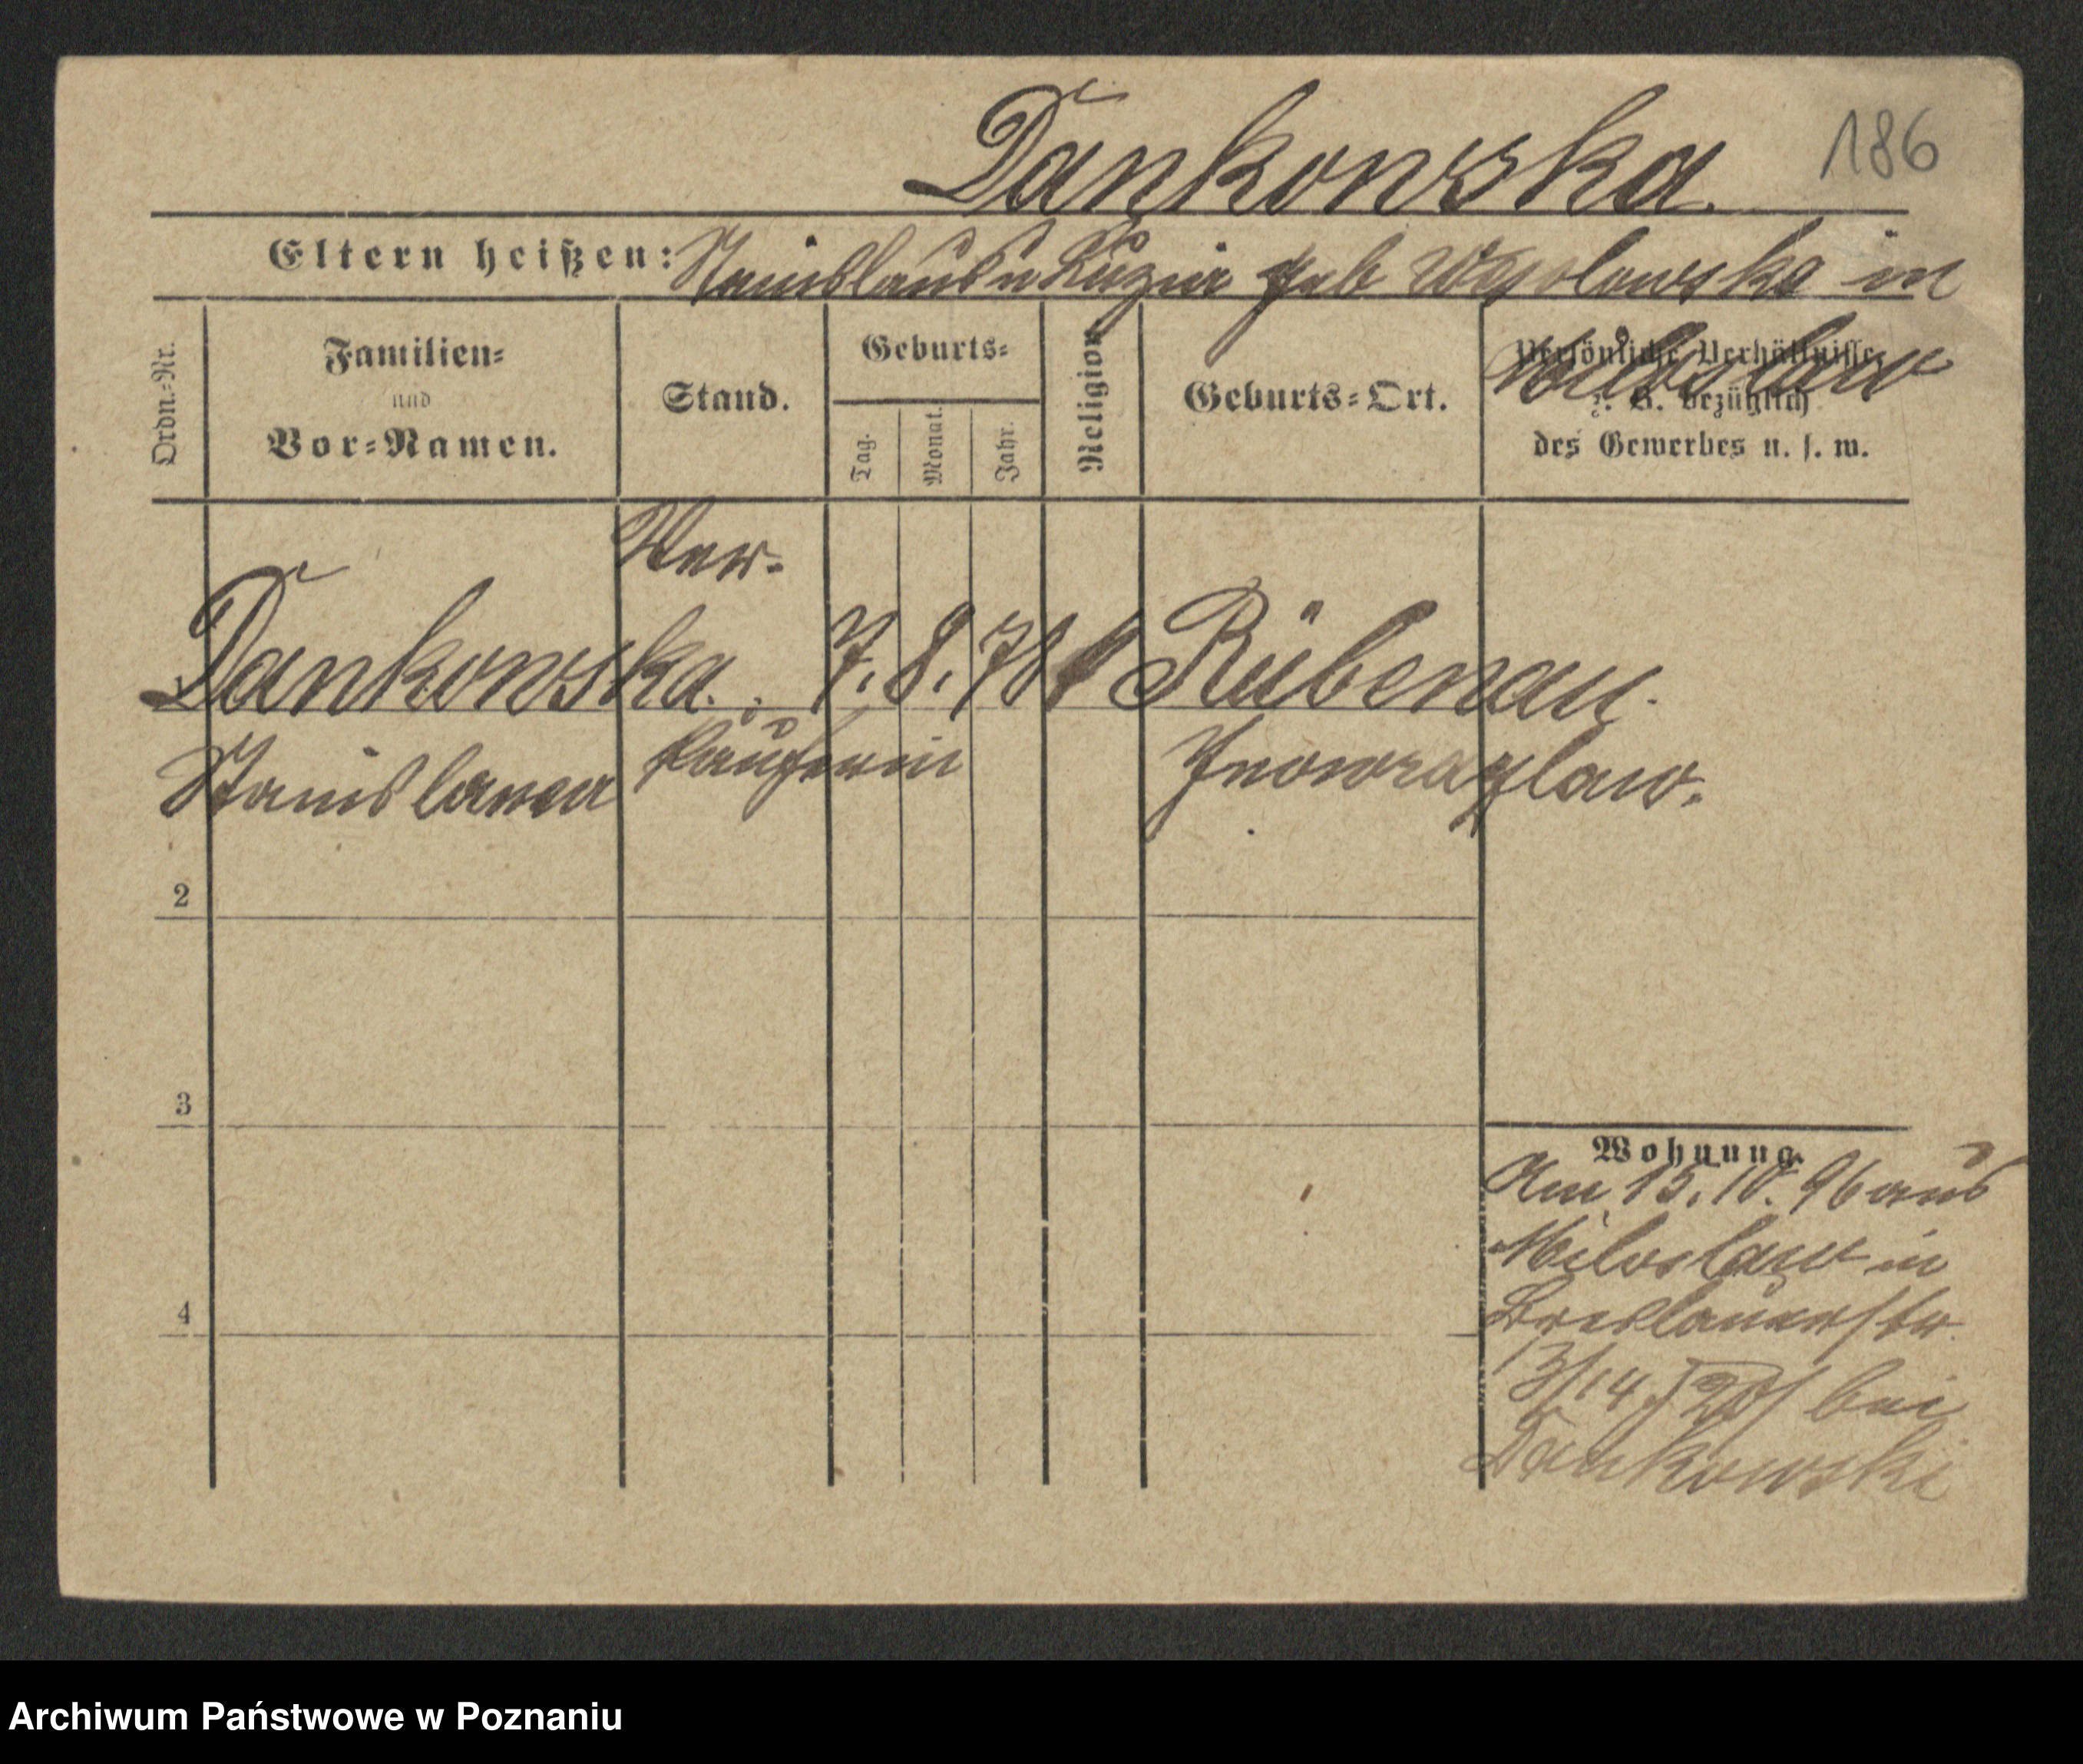 Dankowska. 186
Eltern heißen: Stanislaus u Luzia geb Wesolowska in
Miloslaw
Ordn.-Nr.
Familien-
und
Vor-Namen.
Stand.
Geburts-
Tag.
Monat.
Jahr.
Religion
Geburts-Ort.
Persönliche Verhältnisse
z. B. bezüglich
des Gewerbes u. s. w.
Ver-
1 Dankowska. 7. 8. 78 k Rübenau.
Stanislawa käuferin Inowrazlaw.
2
3
4
Wohnung.
Am 15. 10. 96 aus
Miloslaw in
Breslauerstr.
13/14 bei
Dankowski
Archiwum Państwowe w Poznaniu